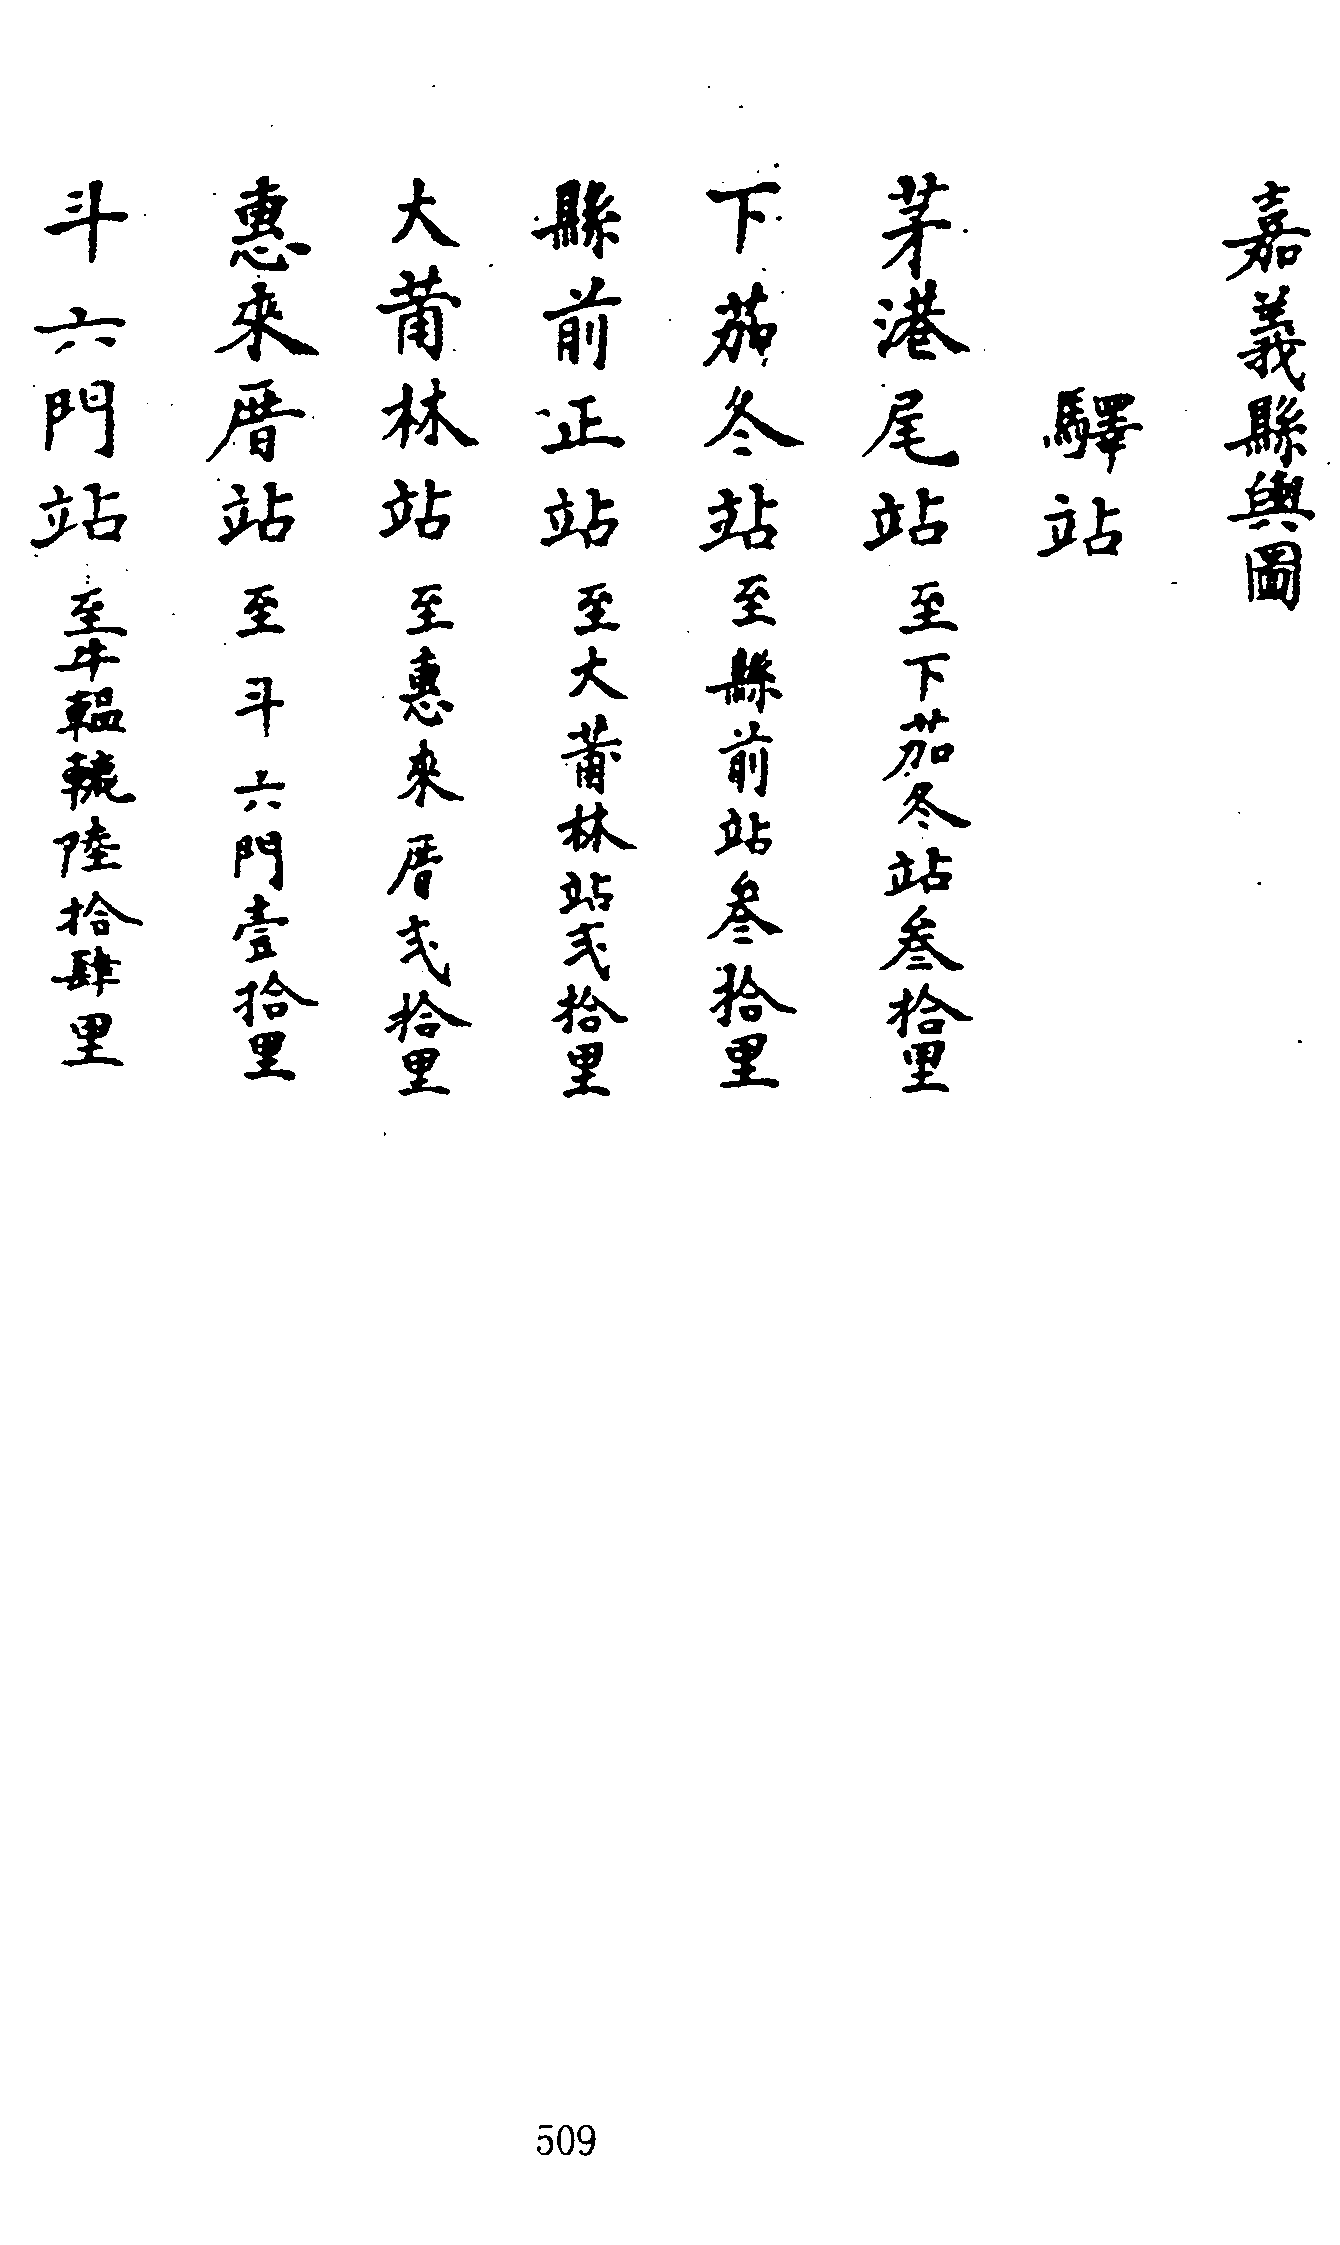 嘉義縣輿圖
驛站
茅港尾站至下茄苳站叁拾里
下茄冬站至縣前站叁拾里
縣前正站至大莆林站弍拾里
大莆林站至惠來厝弍拾里
惠來厝站至斗六門壹拾里
斗六門站至牛轀轆陸拾肆里
509